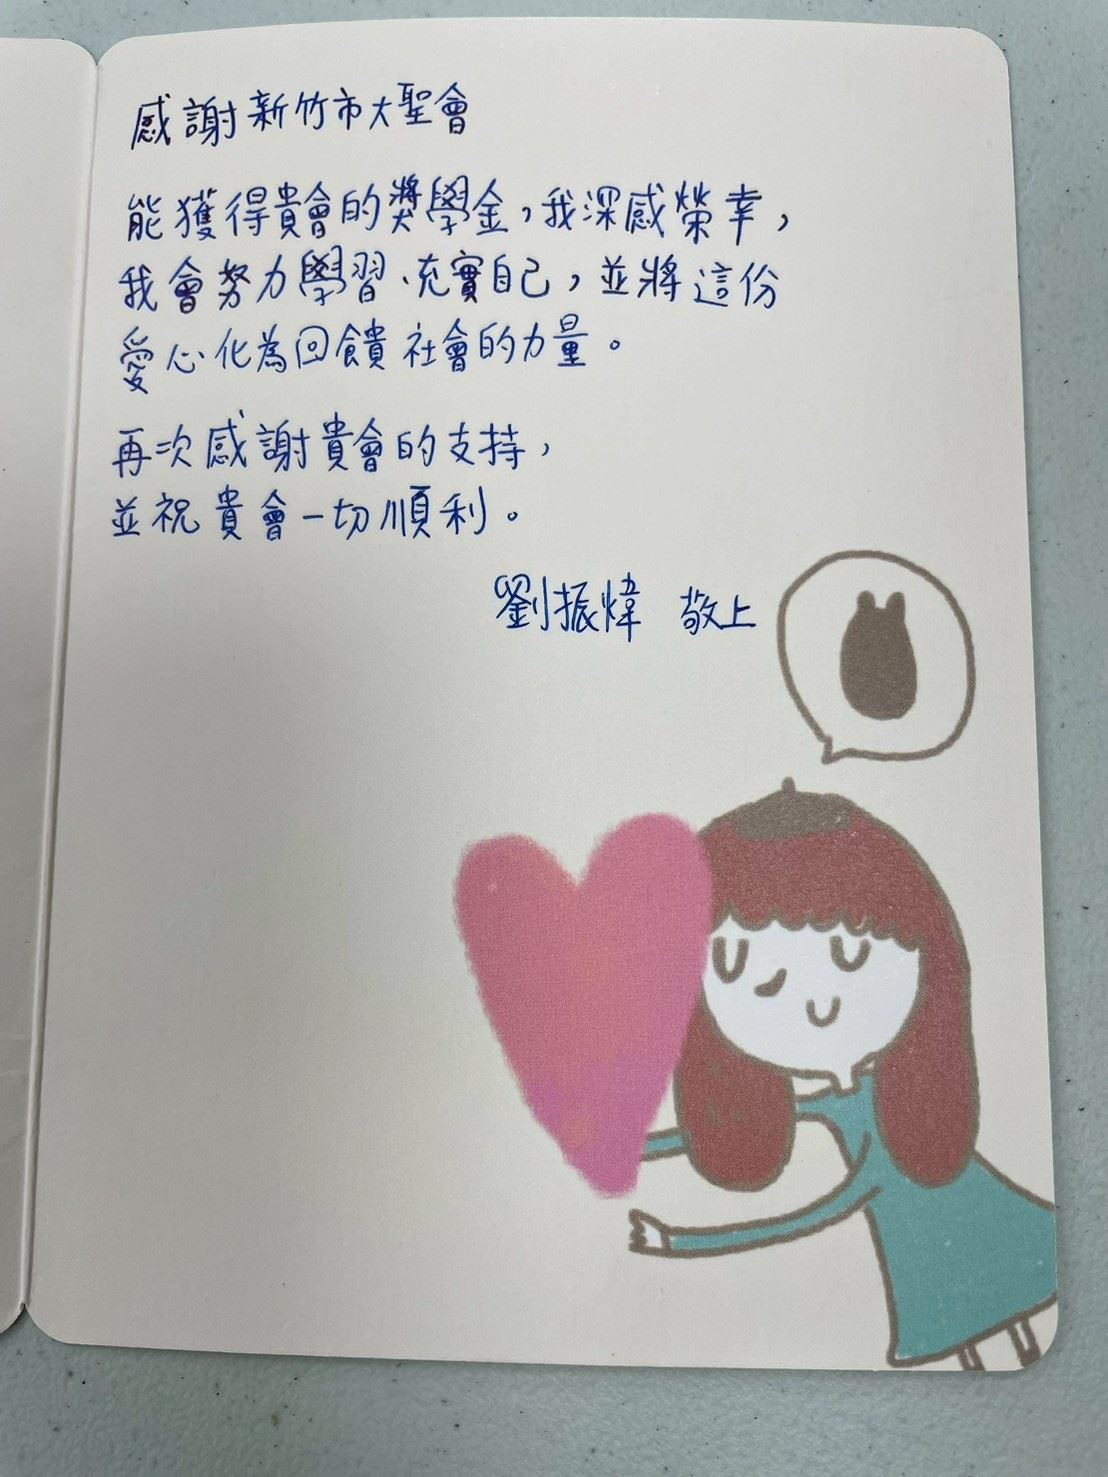 感謝新竹市大聖會
能獲得貴會的獎學金，我深感榮幸，
我會努力學習、充實自己，並將這份
愛心化為回饋社會的力量。
再次感謝貴會的支持，
並祝貴會一切順利。
劉振煒 敬上